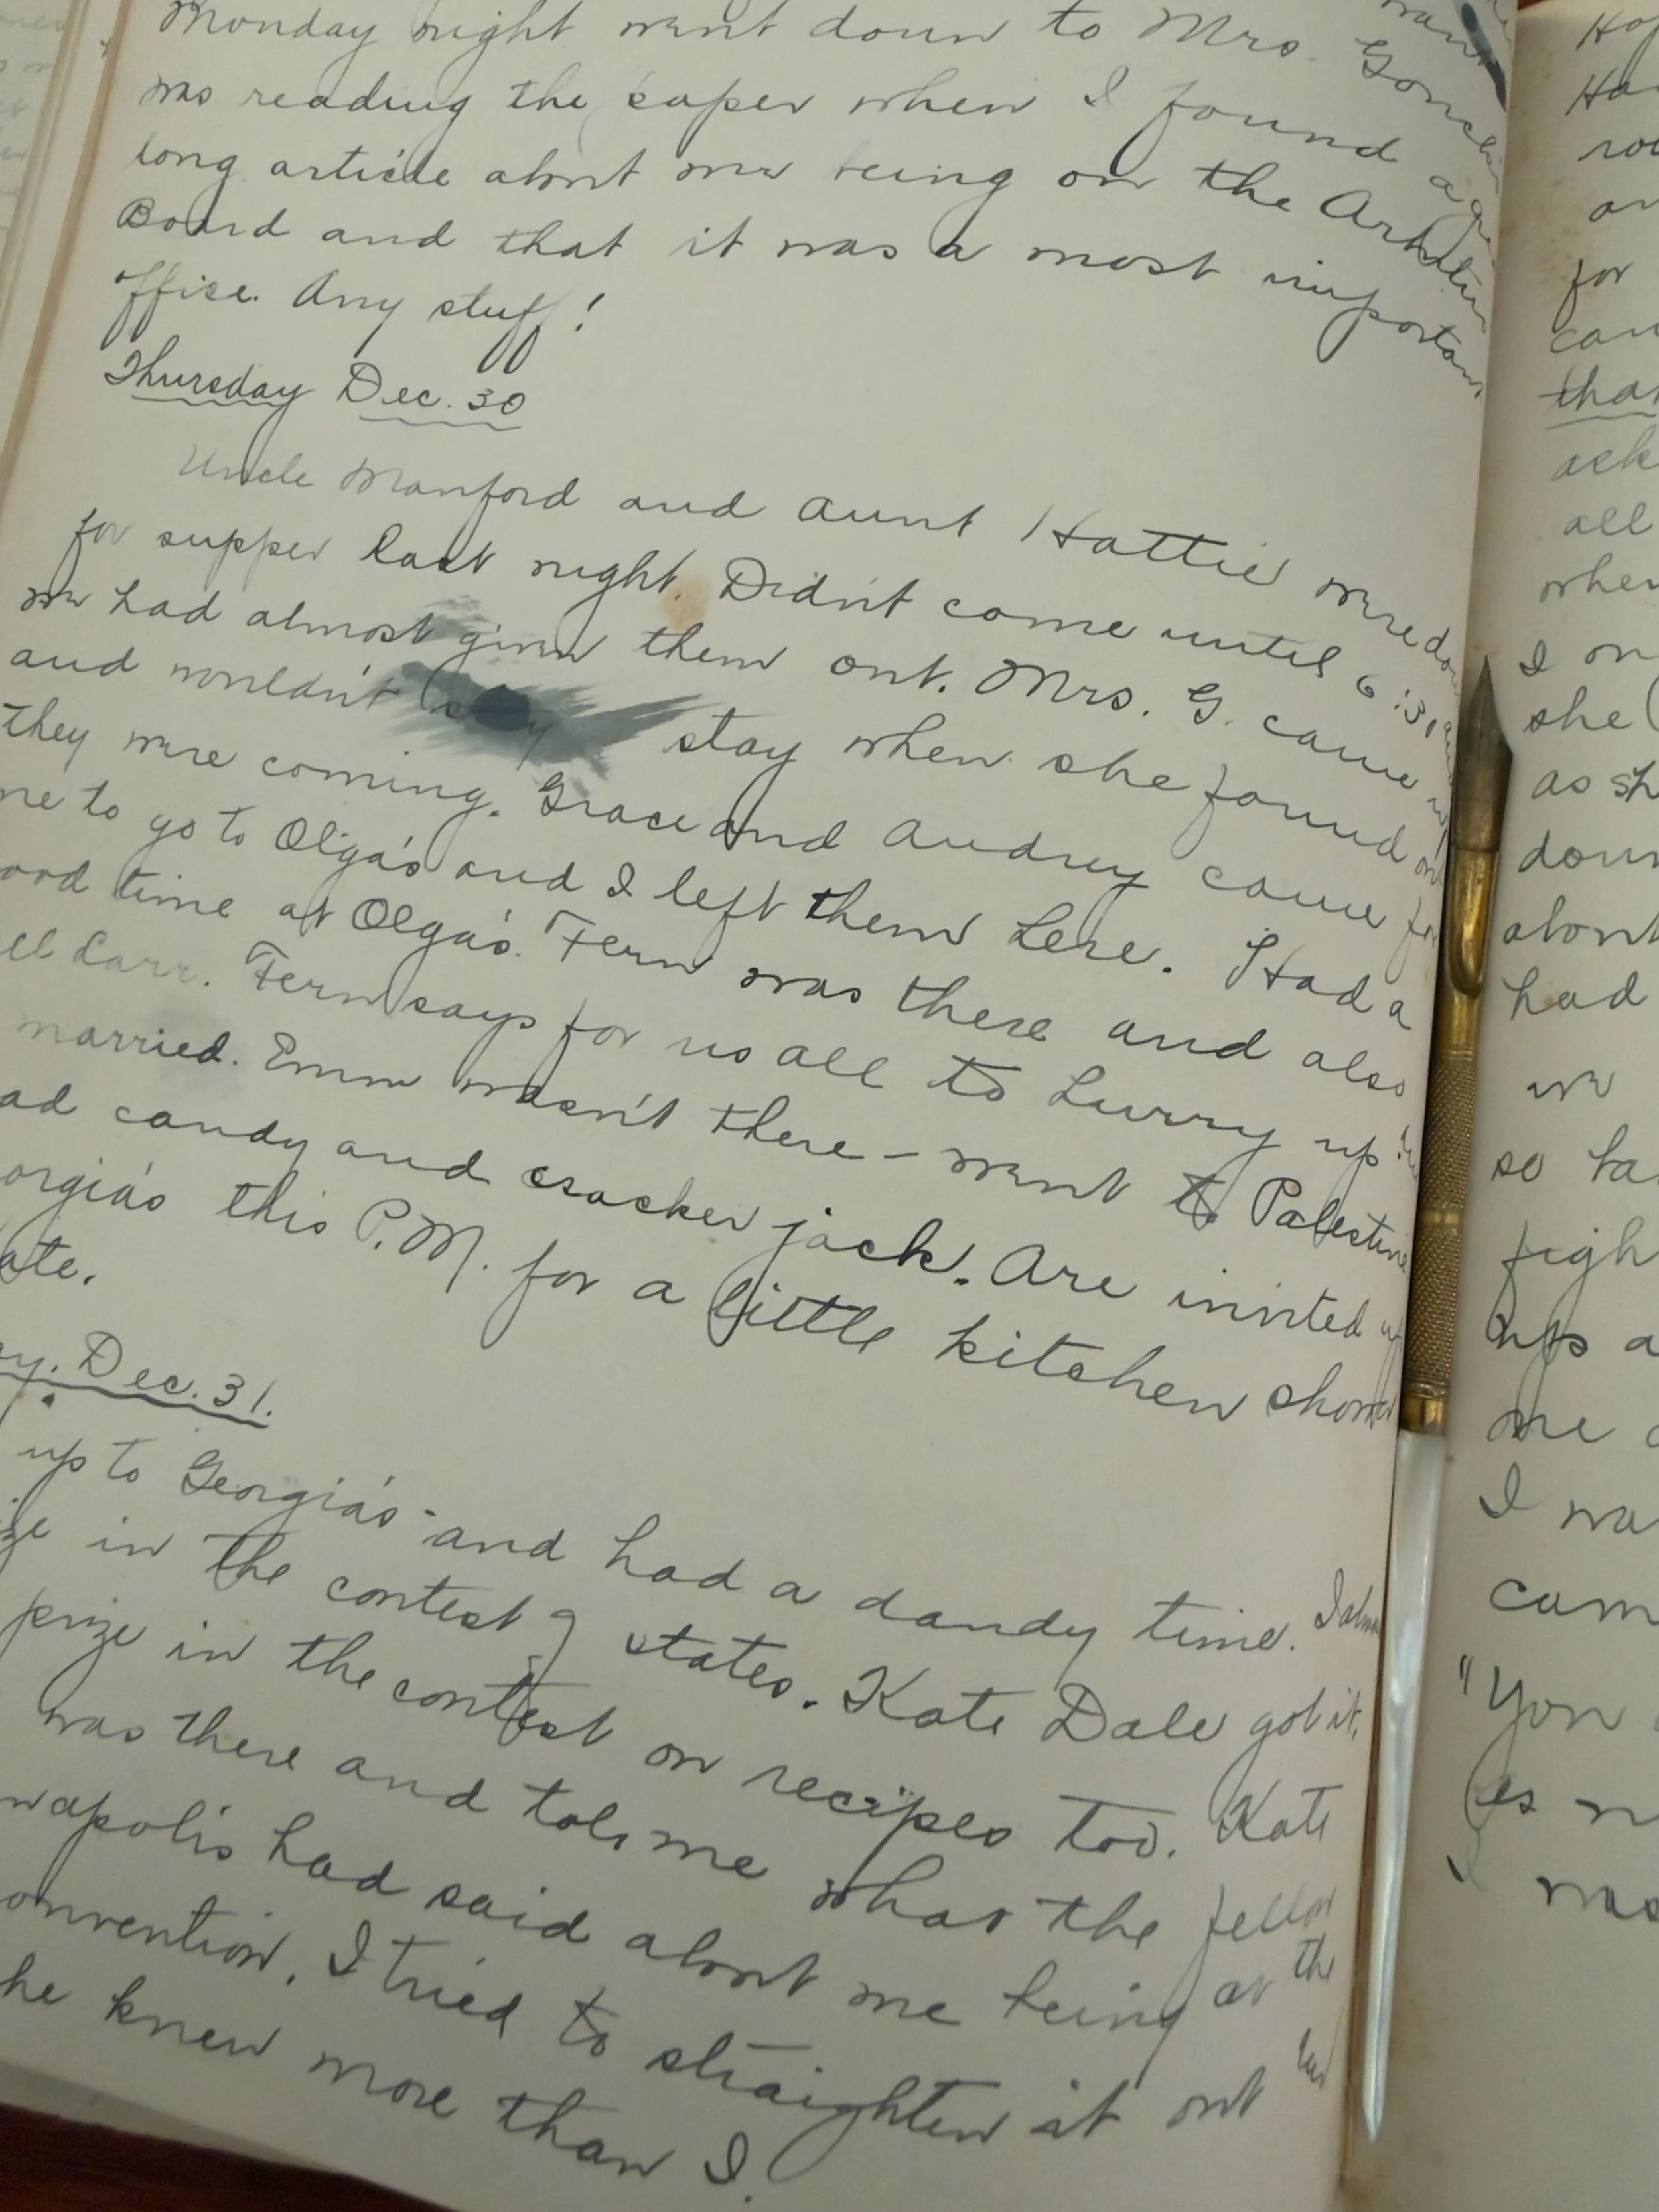 Monday night went down to Mrs.
was reading the paper when I found a
long article about me being on the
Board and that it was a most importan
office. Any stuff!
Thursday Dec. 30
Uncle Manford and Aunt Hattie were
for supper last night. Didn't come until 6:30
we had almost given them out. Mrs. G. came
and wouldn't stay when she found
they were coming. Grace and Audrey came for
me to go to Olga's and I left them here. Had a
ood time at Olga's. Fern was there and also
ell Carr. Fern says for us all to hurry up
married. Emm wasn't there – went to Palestine
ad candy and cracker jack. Are invited
orgia's this P.M. for a little kitchen shower
ate.
ay. Dec. 31.
up to Georgia's and had a dandy time. I
ize in the contest of states. Kate Dale got it,
prize in the contest on recipes too. Kate
was there and told me what the fellow
napolis had said about me being at the
onvention. I tried to straighten it out
he knew more than I.
for
than
ask
all
when
I
she
as sh
down
about
had
we
so
figh
ups a
me
I wa
cam
"You
was